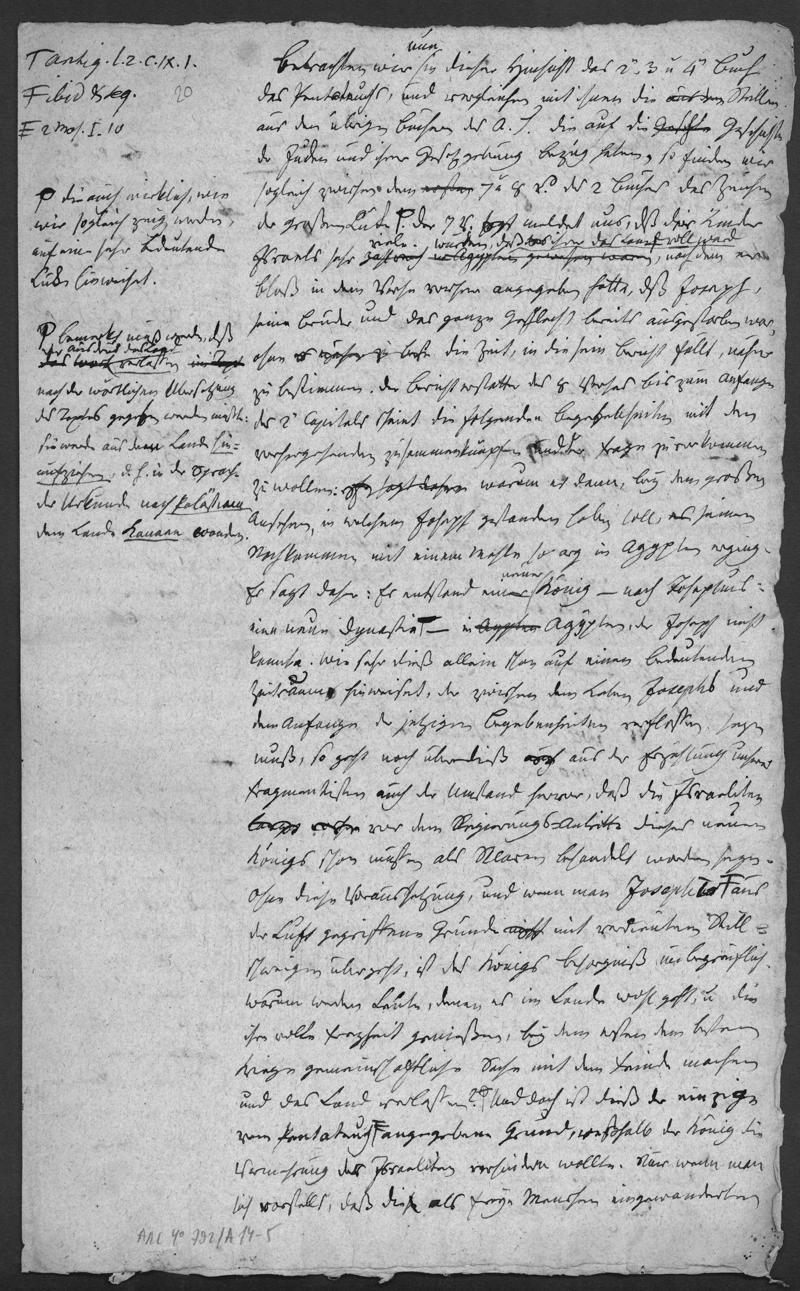 T antiq. l. 2. c. IX. 1.
F ibid & sq.
20
E 2 Mos. I. 10
die auch wirklich, wie
wir sogleich zeigen werden,
auf eine sehr bedeutende
Lücke hinweiset.
bemerkt muß werden, daß
das verlassen
nach der wörtlichen Übersetzung
des Textes gegeben werden müßte:
sie werde aus dem Lande hin=
aufziehen, d. h. in der Sprache
der Urkunde nach Palästina
dem Lande Kanaan wandern.
nun
Betrachten wir in dieser Hinsicht das 2e, 3 u 4e Buch
des Pentateuchs, und vergleichen mit ihnen die aus den Stellen
aus den übrigen Büchern des A. T. die auf die Geschichte
der Juden und ihrer Gesetzgebung bezug haben, so finden wir
sogleich zwischen dem ersten 7 u 8 V. des 2 Buches das Zeichen
der großen Lücke. der 7 V. sagt meldet uns, daß die Kinder
viele wurden, daß das Land voll ward
Israels sehr zahlreich in Ägypten gewesen waren, nachdem er
bloß in dem Verse vorher angegeben hatte, daß Joseph,
seine Brüder und das ganze Geschlecht bereits ausgestorben war,
ohne die Zeit, in die sein Bericht fällt, näher
zu bestimmen. der Berichterstatter des 8 Verses bis zum Anfange
des 2e Capitels scheint die folgenden Begebenheiten mit dem
vorhergehenden zusammenknüpfen und der Frage zuvorkommen
zu wollen: warum es denn, bey dem großen
Ansehen, in welchem Joseph gestanden haben soll, es seinen
Nachkommen mit einem Mahle so arg in Ägypten erging.
neuer
Er sagt daher: Es entstand ein König – nach Josephus =
eine neue Dynastie T – in Ägypten, der Joseph nicht
kannte. Wie sehr dieß allein schon auf einen bedeutenden
Zeitraum hinweiset, der zwischen dem Leben Josephs und
dem Anfange der jetzigen Begebenheiten verflossen seyn
muß, so geht noch überdieß auch aus der Erzählung unseres
Fragmentisten auch der Umstand hervor, daß die Israeliten
vor dem Regierungs-Antritte dieses neuen
Königs schon mußten als Sklaven behandelt worden seyn.
Ohne diese Voraussetzung, und wenn man Josephus F aus
der Luft gegriffene Gründe nicht mit verdientem Still=
schweigen übergeht, ist des Königs Besorgniß unbegreiflich.
warum werden Leute, denen es im Lande wohl geht, u die
ihre volle Freyheit genießen, bey dem ersten dem besten
Kriege gemeinschaftliche Sache mit dem Feinde machen
und das Land verlassen? Und doch ist dieß der einzige
vom Pentateuch E angegebene Grund, weßhalb der König die
Vermehrung der Israeliten verhindern wollte. Nur wenn man
sich vorstellt, daß diese als freye Menschen eingewanderten
ARC 4° 792/A 14-5